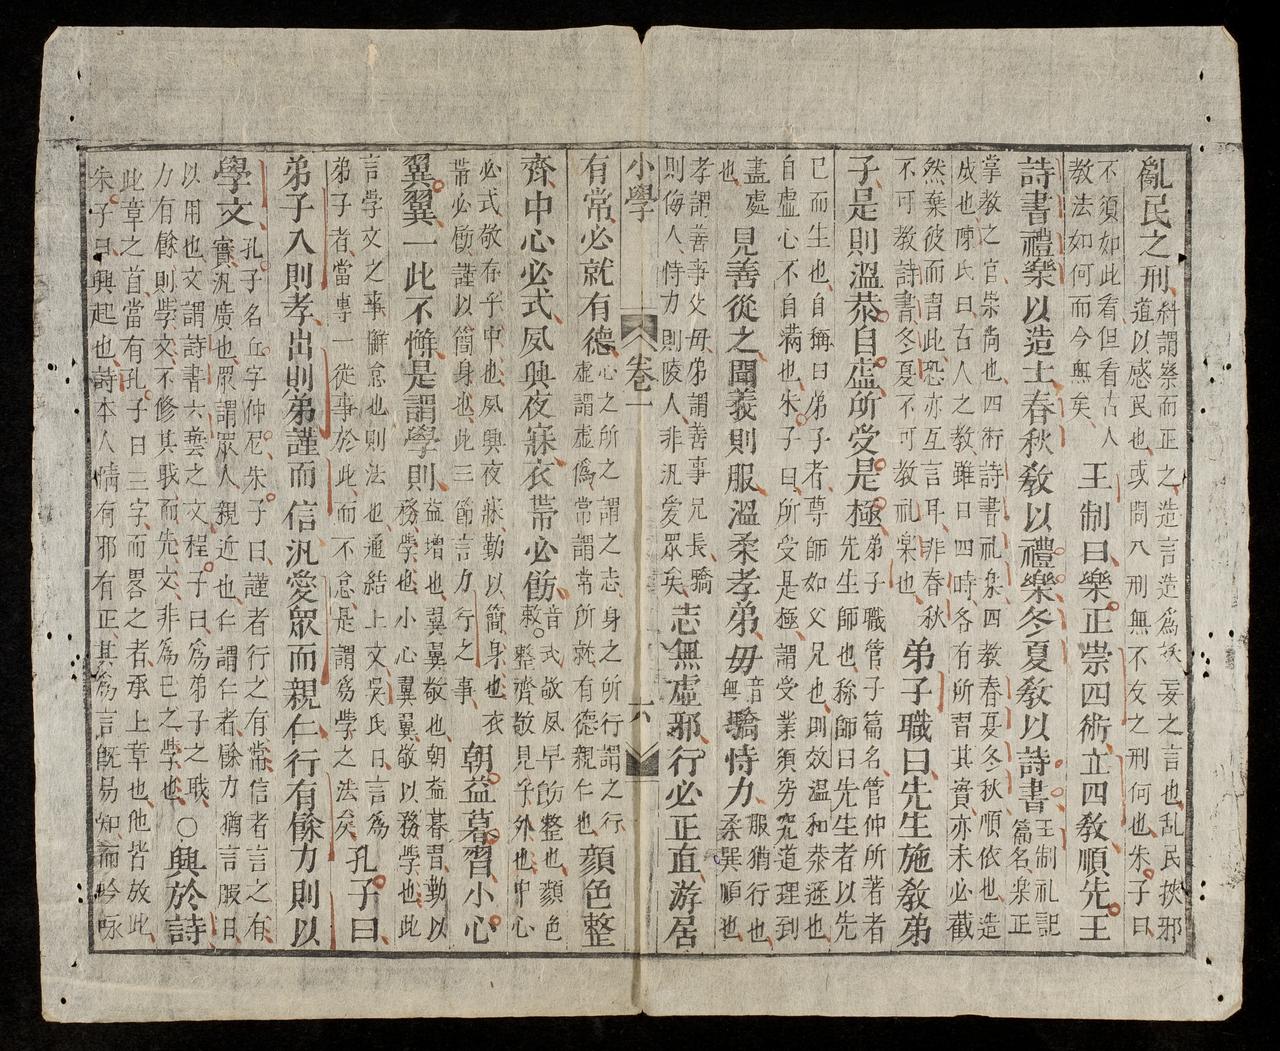 亂民之刑
糾謂察而正之造言造為妖妄之言也乱民挾邪
道以感民也或問八刑無不友之刑何也朱子曰
不須如此看但看古人
教法如何而今無矣
王制曰樂正崇四術立四敎順先王
詩書禮樂以造士春秋敎以禮樂冬夏敎以詩書
王制礼記
篇名楽正
掌教之官崇尚也四術詩書礼楽四教春夏冬秋順依也造
成也陳氏曰古人之教雖曰四時各有所習其實亦未必截
然棄彼而習此恐亦互言耳非春秋
不可教詩書冬夏不可教礼楽也
弟子職曰先生施敎弟
子是則溫恭自虛所受是極
弟子職管子篇名管仲所著者
先生師也称師曰先生者以先
已而生也自稱曰弟子者尊師如父兄也則效温和恭遜也
自虛心不自滿也朱子曰所受是極謂受業須穷究道理到
盡處
也
見善從之聞義則服溫柔孝弟毋
音
無
驕恃力
服猶行也
柔巽順也
孝謂善事父毋弟謂善事兄長驕
則侮人恃力則陵人非汎愛眾矣
志無虛邪行必正直游居
小學 卷一 六
有常必就有德
心之所之謂之志身之所行謂之行
虛謂虛偽常謂常所就有德親仁也
顏色整
齊中心必式夙興夜寐衣帯必飭
音式敬夙早飭整也顏色
敕。整齊敬見于外也中心
必式敬存乎中也夙興夜寐勤以簡身也衣
帯必飭謹以簡身也此三節言力行之事
朝益暮習小心
翼翼一此不懈是謂學則
益增也翼翼敬也朝益暮習勤以
務學也小心翼翼敬以務学也此
言学文之事懈怠也則法也通結上文吳氏曰言為
弟子者當専一従事於此而不怠是謂為学之法矣
孔子曰
弟子入則孝出則弟謹而信汎愛眾而親仁行有餘力則以
學文
孔子名丘字仲尼朱子曰謹者行之有常信者言之有
實汎廣也眾謂眾人親近也仁謂仁者餘力猶言暇日
以用也文謂詩書六藝之文程子曰為弟子之職
力有餘則学文不修其職而先文非為已之学也
〇興於詩
此章之首當有孔子曰三字而畧之者承上章也他皆放此
朱子曰興起也詩本人情有邪有正其為言既易知而吟咏